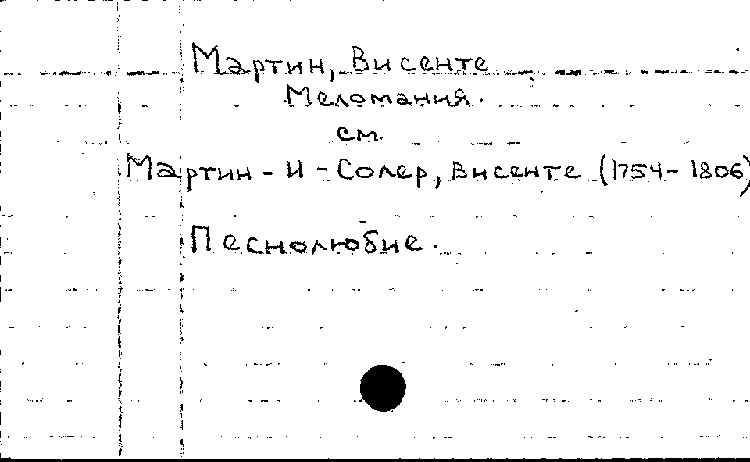 Мартин, Висенте
Меломания.
см.
Мартин-и-Солер, Висенте (1754-1806)
Песнолюбие.